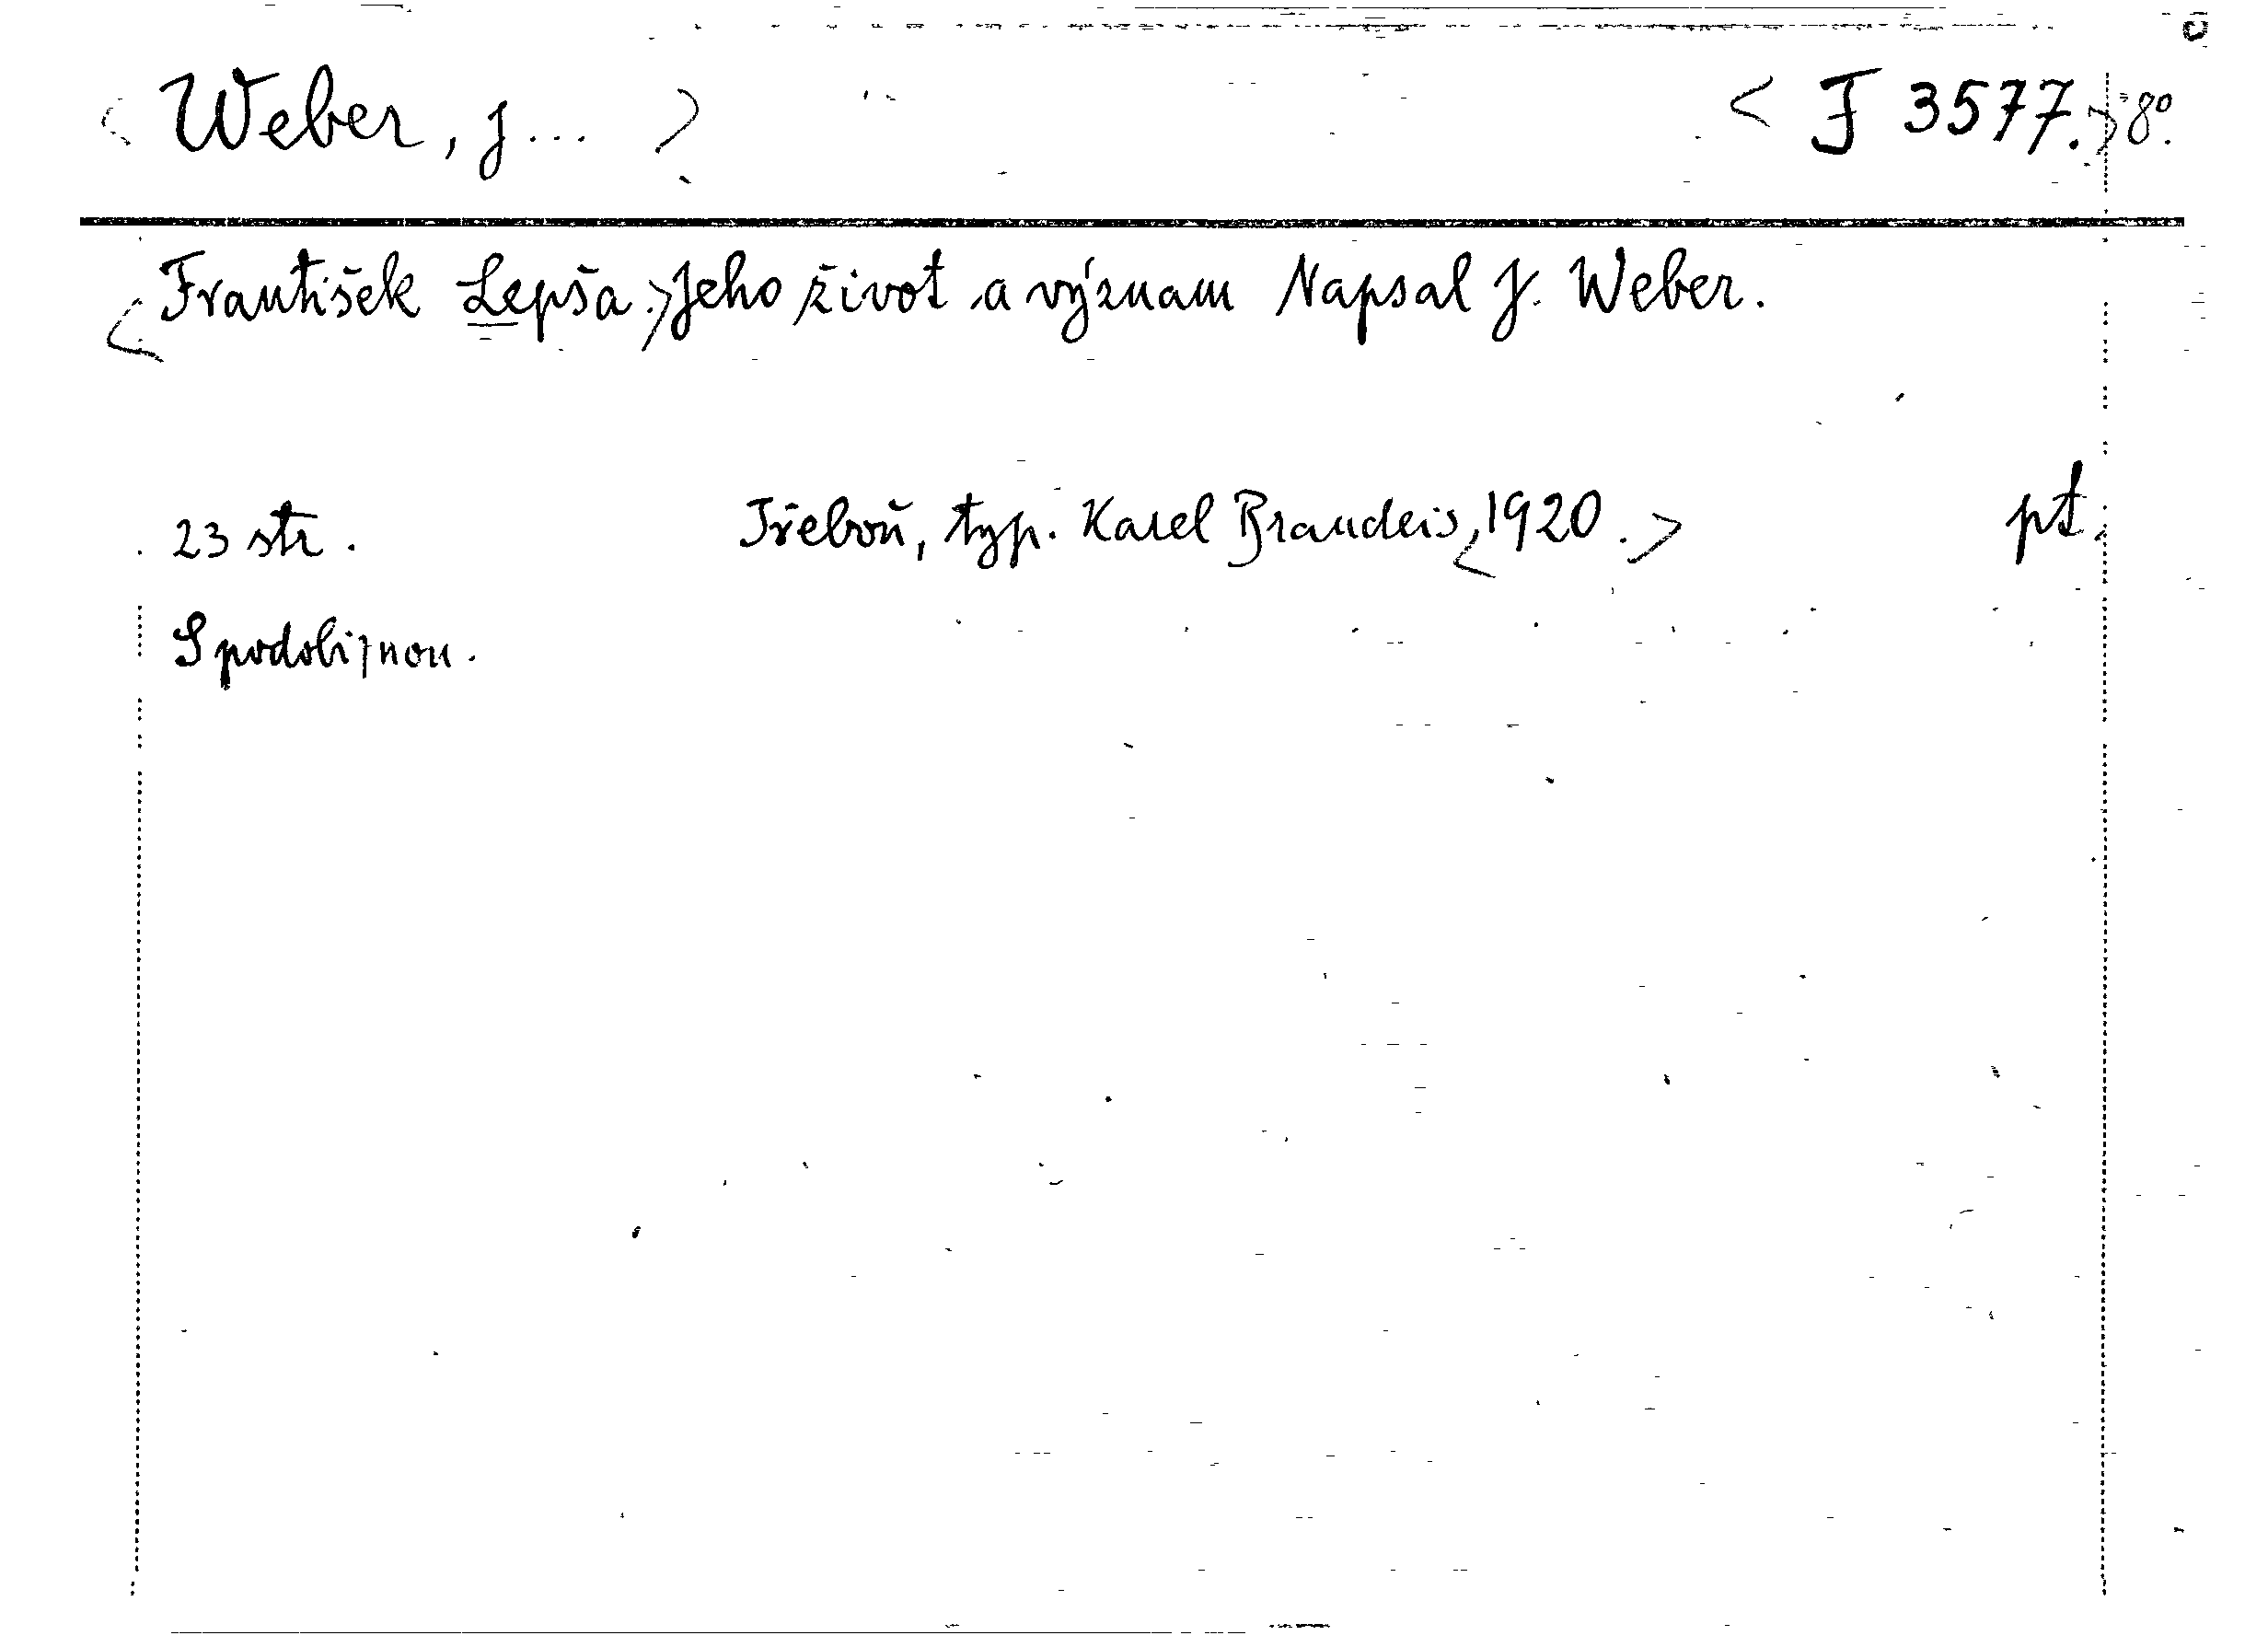 < Weber, J... > < F 3577. > 8°.
< František Lepša. > Jeho život a význam Napsal J. Weber.
23 str. Třeboň, typ. Karel Brandeis, < 1920. > pt.
S podobiznou.